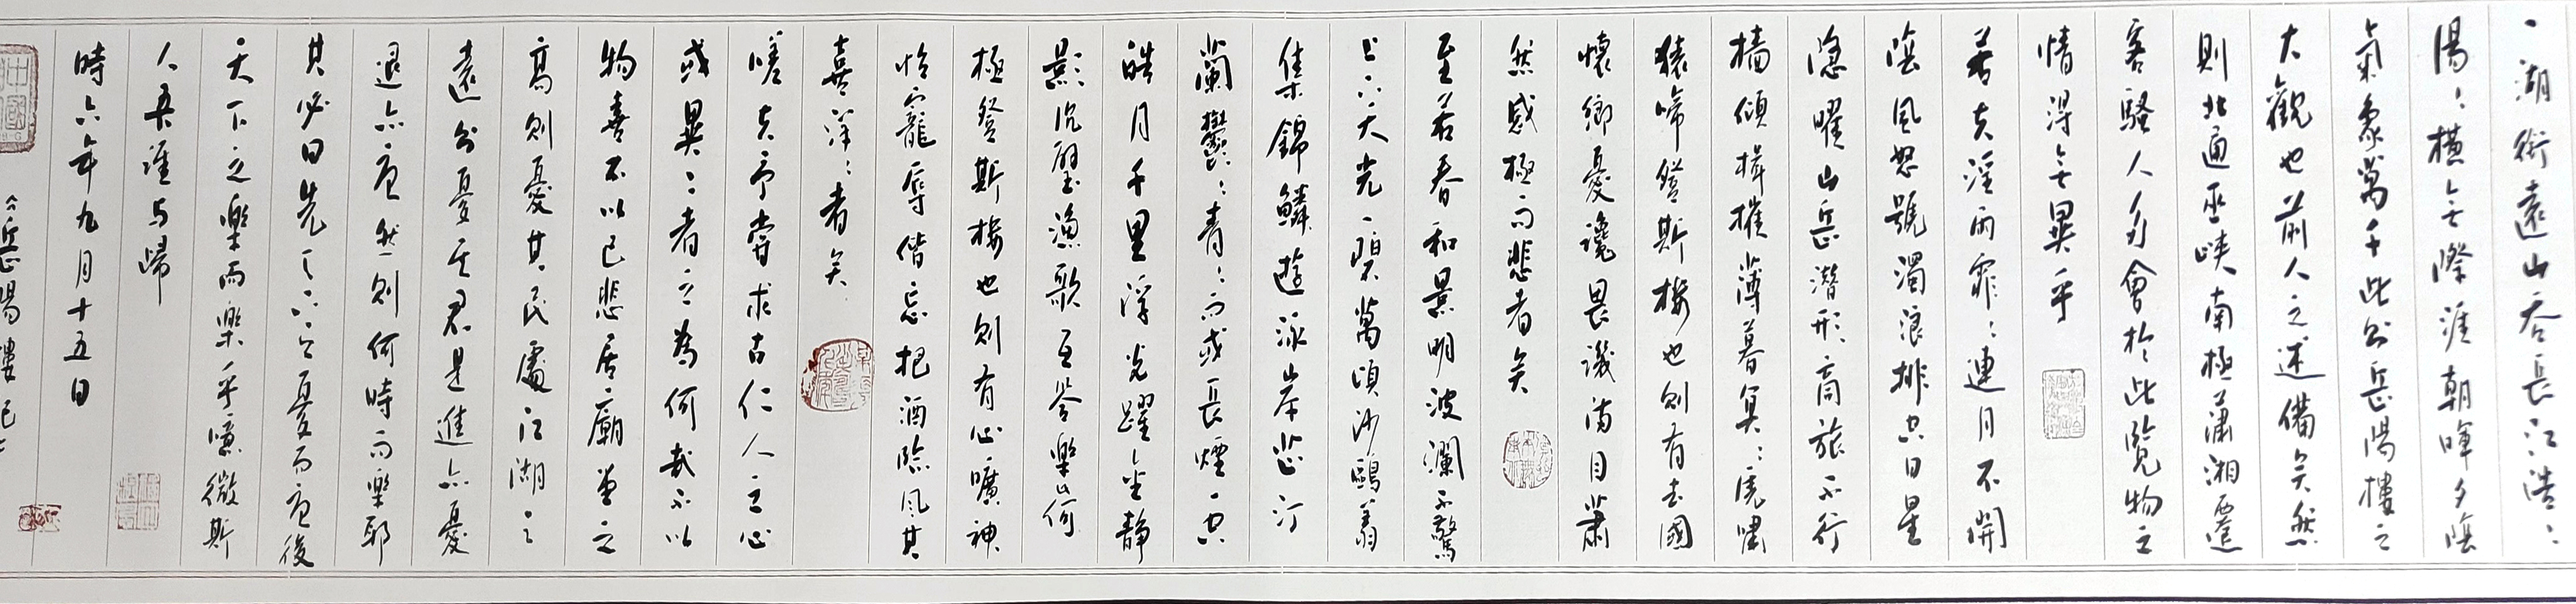 一湖銜遠山吞長江浩〻
湯〻橫無際涯朝暉夕陰
氣象萬千此則岳陽樓之
大觀也前人之述備矣然
則北通巫峽南極瀟湘遷
客騷人多會於此覽物之
情得無異乎
若夫淫雨霏〻連月不開
陰風怒號濁浪排空日星
隱曜山岳潛形商旅不行
檣傾楫摧薄暮冥〻虎嘯
猿啼登斯樓也則有去國
懷鄉憂讒畏譏滿目蕭
然感極而悲者矣
至若春和景明波瀾不驚
上下天光一碧萬頃沙鷗翔
集錦鱗遊泳岸芷汀
蘭鬱〻青〻而或長煙一空
皓月千里浮光躍金靜
影沉璧漁歌互答樂此何
極登斯樓也則有心曠神
怡寵辱偕忘把酒臨風其
喜洋〻者矣
嗟夫予嘗求古仁人之心
或異二者之為何哉不以
物喜不以己悲居廟堂之
高則憂其民處江湖之
遠則憂其君是進亦憂
退亦憂然則何時而樂耶
其必曰先天下之憂而憂後
天下之樂而樂乎噫微斯
人吾誰與歸
時六年九月十五日
岳陽樓記